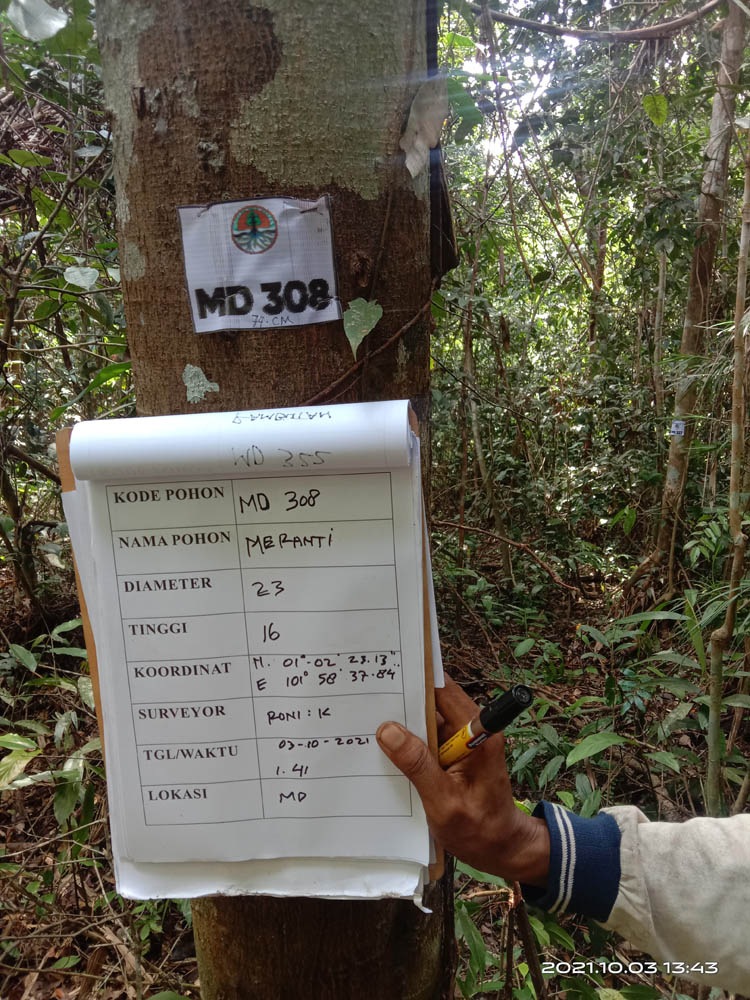 MD 308
74.CM
WD 355
KODE POHON MD 308
NAMA POHON MERANTI
DIAMETER 23
TINGGI 16
KOORDINAT N. 01°-02' 23.13"
E 101° 58' 37.84
SURVEYOR RONI : K
TGL/WAKTU 03-10-2021
1.41
LOKASI MD
2021.10.03 13:43